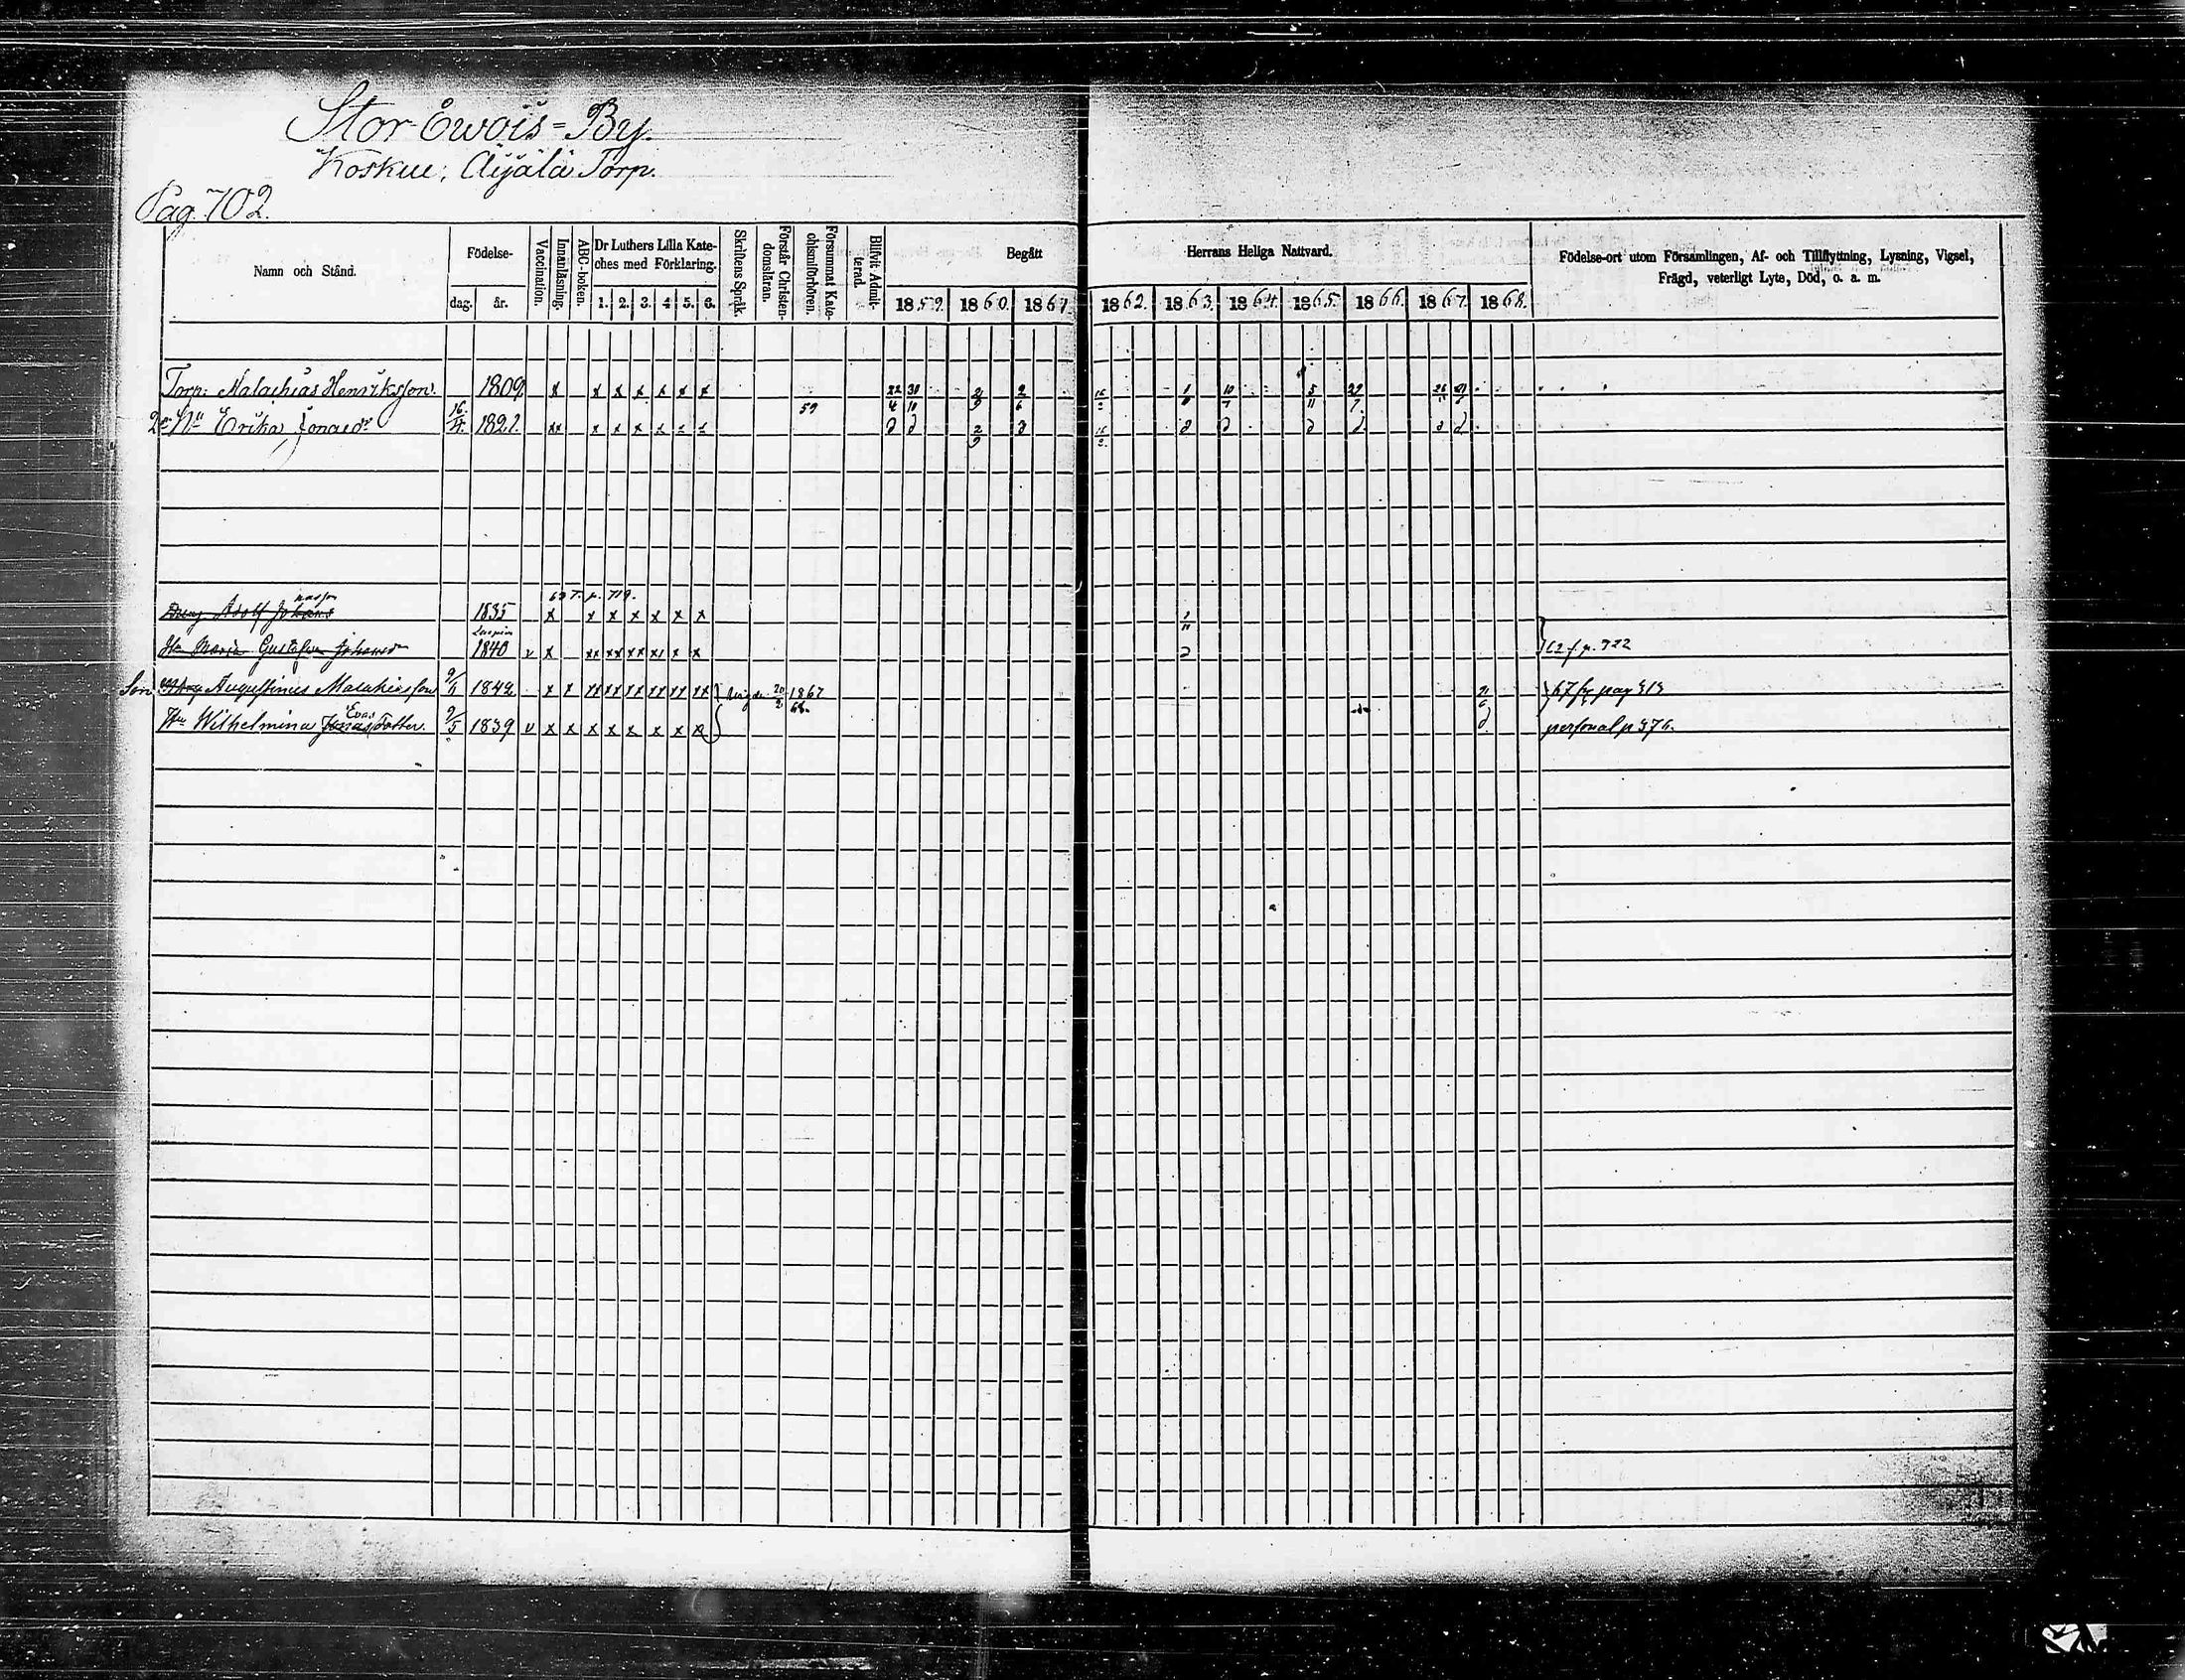 Stor Ewois=By.
Koskue, Äijälä Torp.
Pag. 702.
Namn och Stånd.
Födelse-
dag. år.
Vaccination.
Innanläsning.
ABC-boken.
Dr Luthers Lilla Kate-
ches med Förklaring.
1. 2. 3. 4 5. 6.
Skriftens Språk.
Förstår Christen-
domsläran.
Försummat Kate-
chismiförhören.
Blifvit Admit-
terad.
Begått Herrans Heliga Nattvard.
1859. 1860. 1861 1862. 1863. 1864. 1865. 1866. 1867. 1868.
Födelse-ort utom Församlingen, Af- och Tillflyttning, Lysning, Vigsel,
Frägd, veterligt Lyte, Död, o. a. m.
Torp: Malachias Henriksson. 1809 x x x x x x x 22/4 31/10 2/9 2/6 1/11 10/7 5/11 29/7
59
2 Hu Erika Jonaedr 16/4 1821. xx x x x x x x
nasson
63 T. p. 719.
Dreng Adolf Johans 1835 x x x x x x x
Hu Maria Gustafva Johansdr 1840 v x xx xx xx xx x x 62 f. p. 722
Son Augustinus Malachiasson 1842 x x xx xx xx xx xx xx 20/2 1867 67 fr pag 313
68.
Evas
Hu Wilhelmina Jonas Dotter. 9/5 1839 v x x x x x x x x personal p 376.